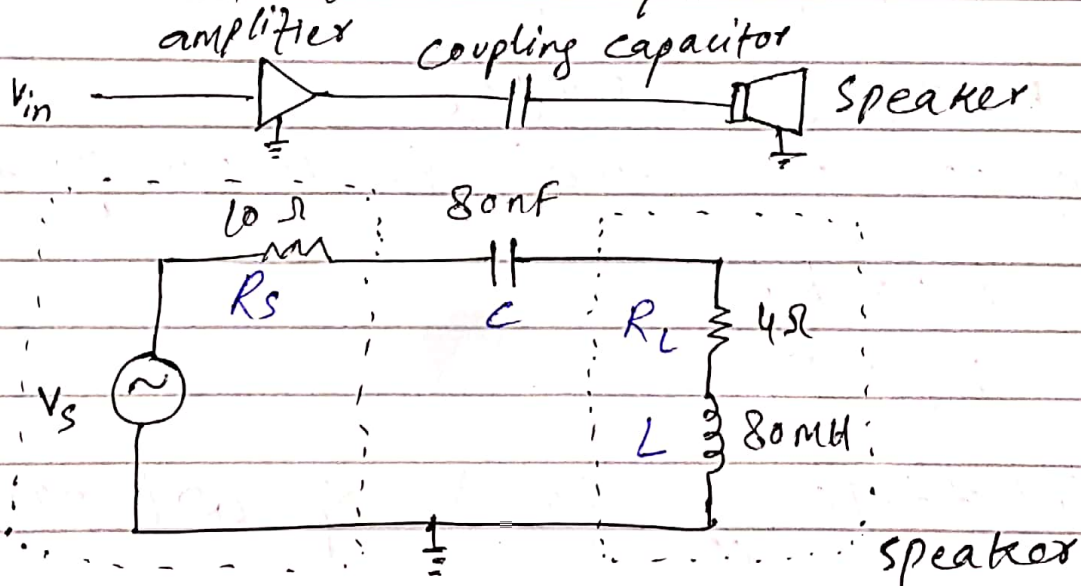 amplifier coupling capacitor
Vin speaker
10 Ω 80nf
RS C RL 4Ω
VS L 80MH
speaker